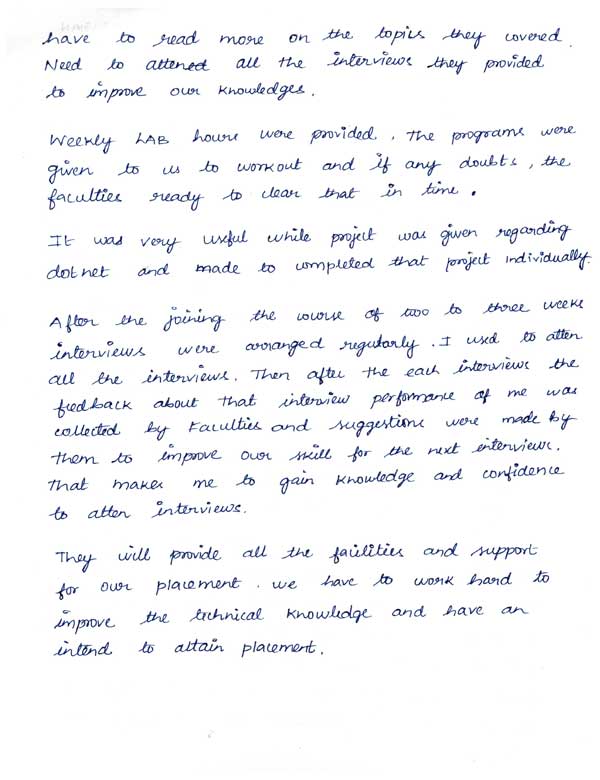 have to read more on the topics they covered.
Need to attened all the interviews they provided
to improve our knowledges.
Weekly LAB hours were provided. The programs were
given to us to workout and if any doubts, the
faculties ready to clear that in time.
It was very useful while project was given regarding
dotnet and made to completed that project individually.
After the joining the course of two to three weeks
interviews were arranged regularly. I used to atten
all the interviews. Then after the each interviews the
feedback about that interview performance of me was
collected by Faculties and suggestions were made by
them to improve our skill for the next interviews.
That makes me to gain knowledge and confidence
to atten interviews.
They will provide all the facilities and support
for our placement. We have to work hard to
improve the technical knowledge and have an
intend to attain placement.